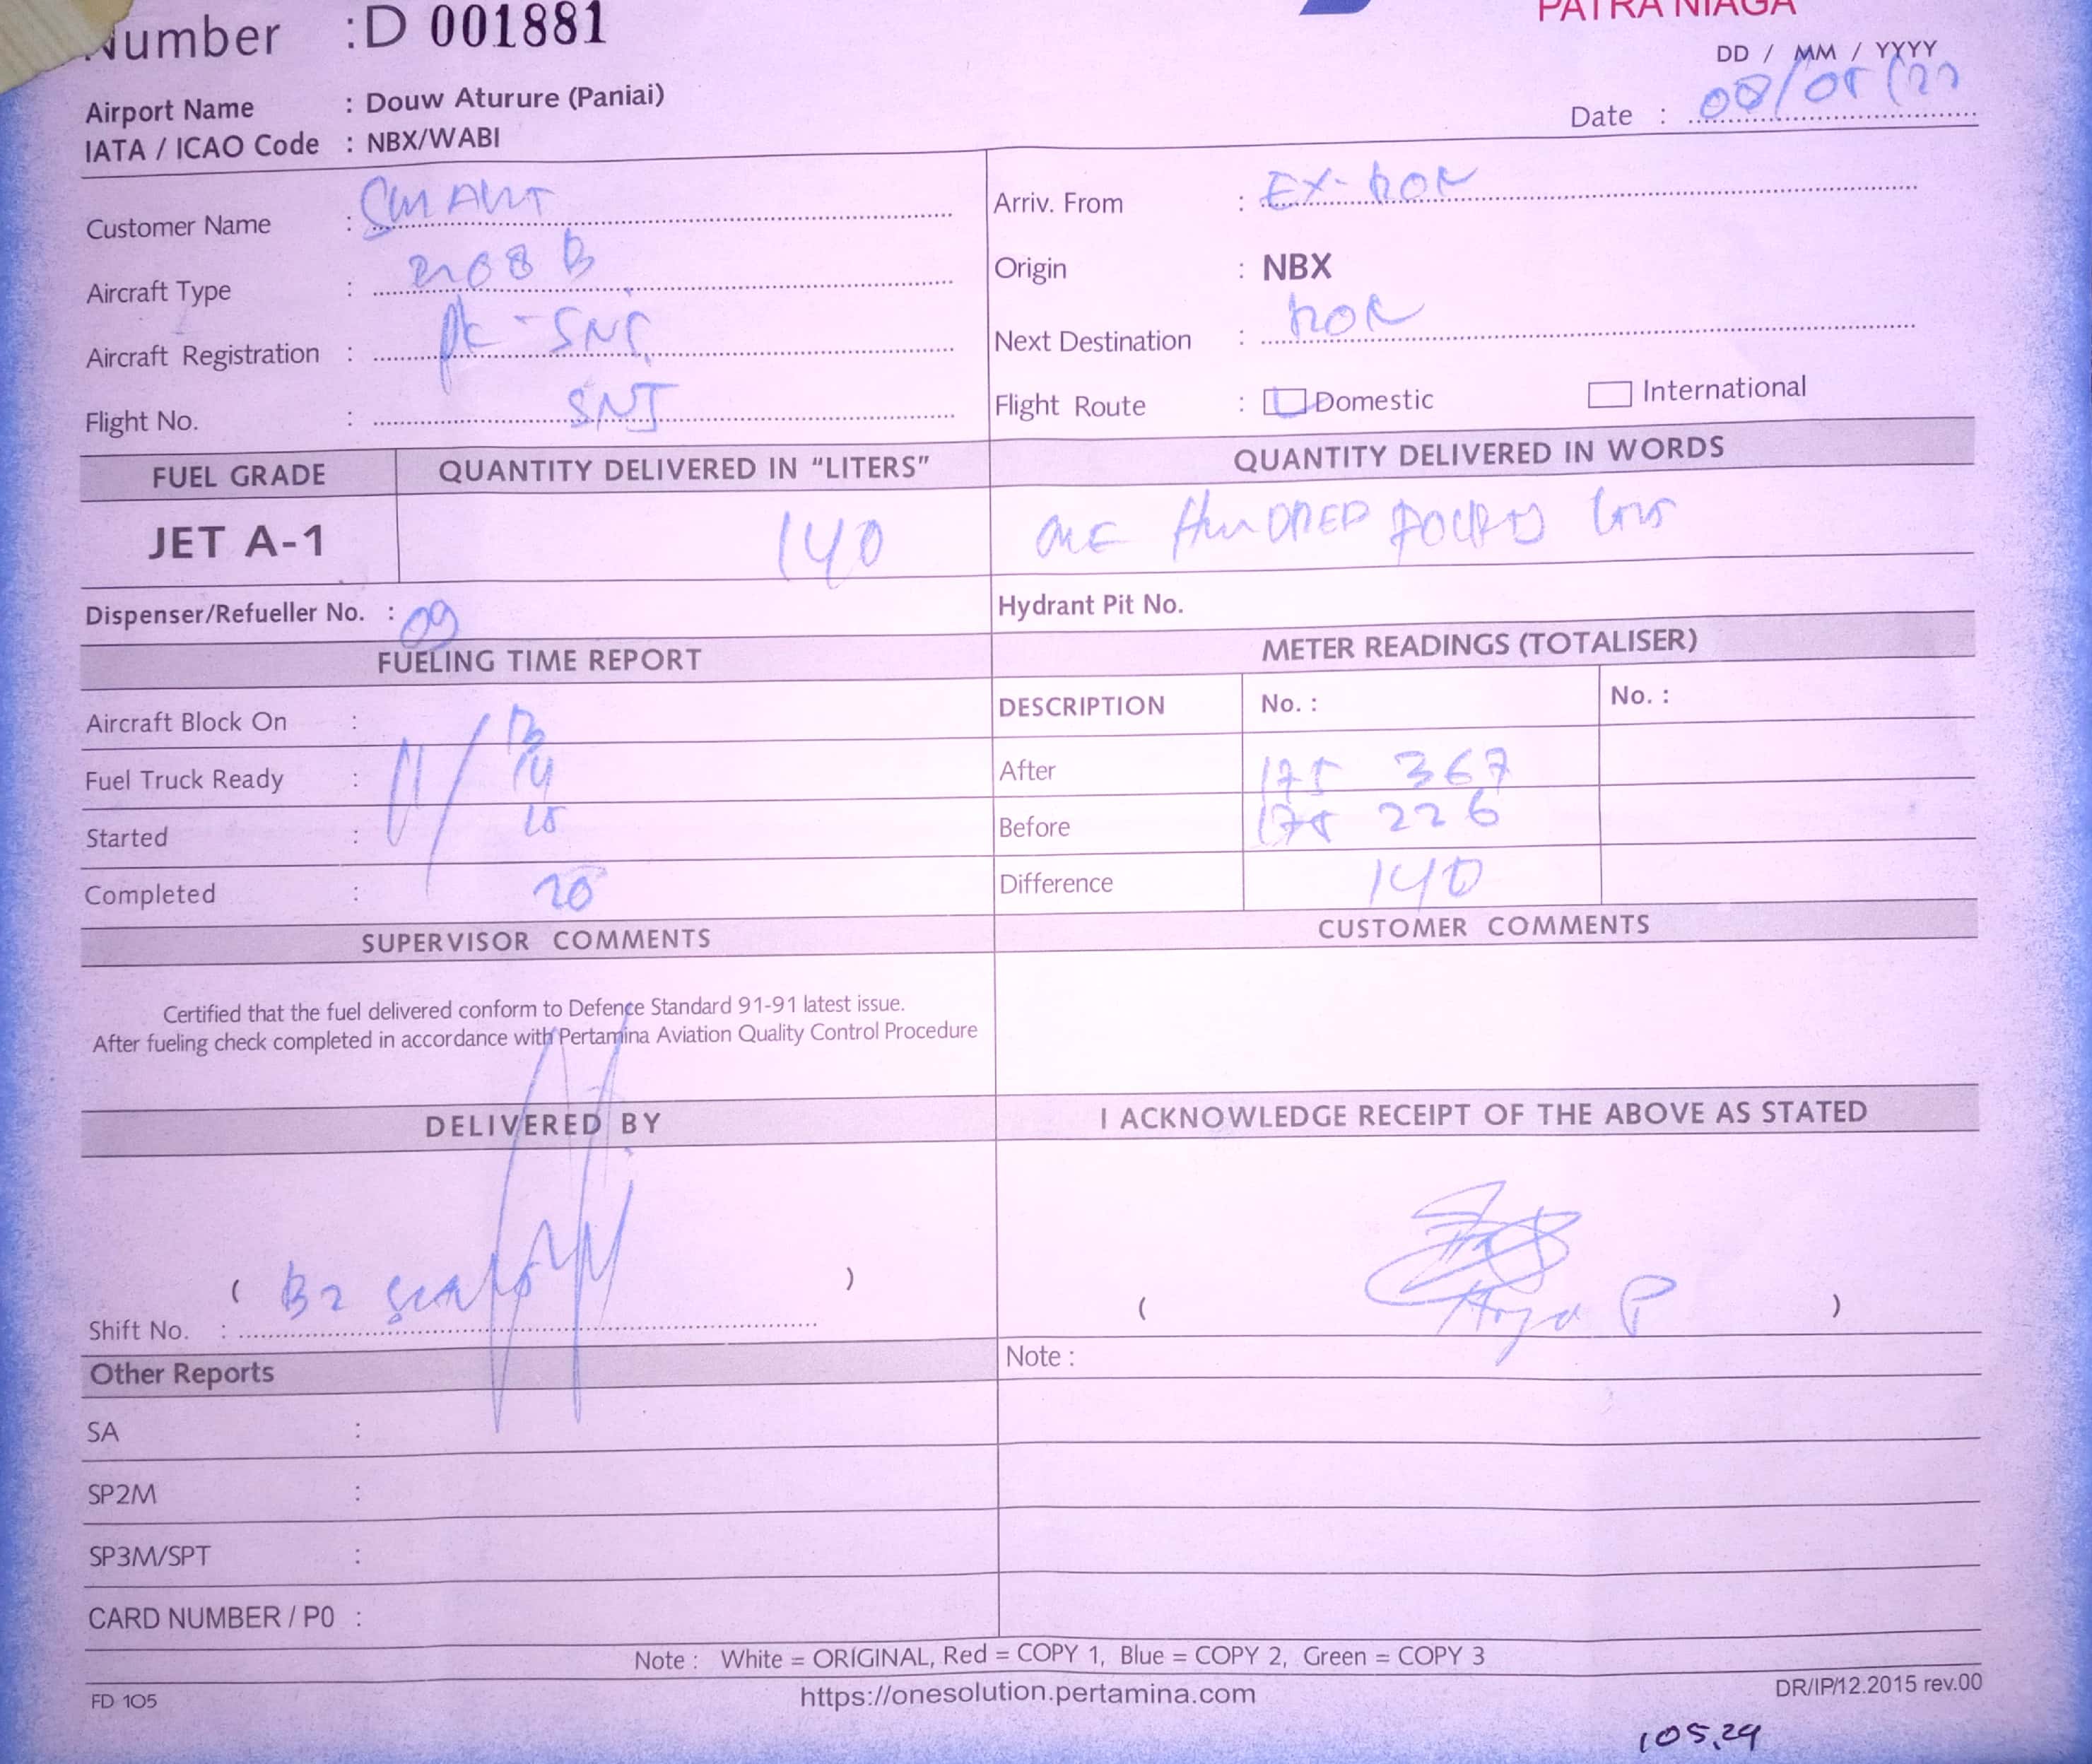 Number : D 001881
PATRA NIAGA
DD / MM / YYYY
Airport Name : Douw Aturure (Paniai)
Date : 08/05/22
IATA / ICAO Code : NBX/WABI
Customer Name : SMART
Arriv. From : EX-
Aircraft Type : 208 B
Origin : NBX
Aircraft Registration : PK-
Next Destination :
Flight No. : SNJ
Flight Route : Domestic International
FUEL GRADE QUANTITY DELIVERED IN “LITERS” QUANTITY DELIVERED IN WORDS
JET A-1 140 ONE HUNDRED
Dispenser/Refueller No. : 09
Hydrant Pit No.
FUELING TIME REPORT METER READINGS (TOTALISER)
Aircraft Block On :
DESCRIPTION No. : No. :
Fuel Truck Ready : 14
After 175 367
Started : 15
Before 175 226
Completed : 20
Difference 140
SUPERVISOR COMMENTS CUSTOMER COMMENTS
Certified that the fuel delivered conform to Defence Standard 91-91 latest issue.
After fueling check completed in accordance with Pertamina Aviation Quality Control Procedure
DELIVERED BY I ACKNOWLEDGE RECEIPT OF THE ABOVE AS STATED
( )
( P )
Shift No. :
Other Reports
Note :
SA :
SP2M :
SP3M/SPT :
CARD NUMBER / P0 :
Note : White = ORIGINAL, Red = COPY 1, Blue = COPY 2, Green = COPY 3
FD 105 https://onesolution.pertamina.com DR/IP/12.2015 rev.00
105,29